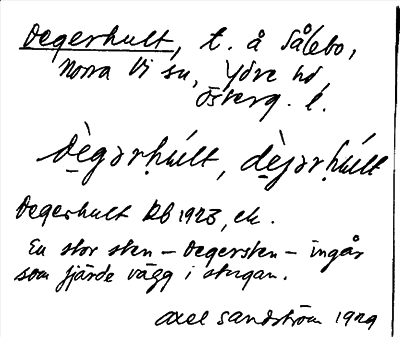 Degerhult, t. å Sålebo,
Norra Vi sn, Ydre hd
Österg. l.
dègərḥúlt, dèjərḥúlt
Degerhult RB 1923, ek.
En stor sten – Degersten – ingår
som fjärde vägg i stugan.
Axel Sandström 1929